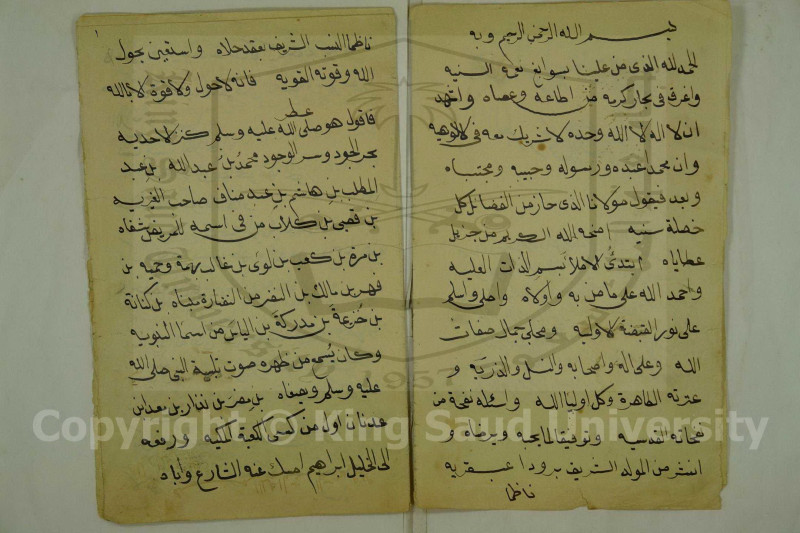 بسم الله الرحمن الرحيم وبه
الحمد لله الذي من علينا بسوابغ نعمه السنيه
واغرقه في بحار كرمه من اطاعه وعصاه واشهد
ان لا اله الا الله وحده لا شريك معه في الالوهيه
وان محمدا عبده ورسوله وحبيبه ومجتباه
وبعد فيقول مولانا الذي حاز من الفضائل كل
خصلة سنيه امنحه الله الكريم من جزيل
عطاياه ابتدئ الاملا بسم الذات العليه
واحمد الله على ما من به واولاه واصلى واسلم
على نور القبضة الاوليه ومجلى جمال صفات
الله وعلى اله واصحابه والنسل والذريه و
عترته الطاهرة وكل اوليا الله واسئله نفحة من
نفحاته القدسيه وتوفيقا لما يحبه ويرضاه و
انشر من المولد الشريف برودا عبقريه
ناظما
١
ناظما النسب الشريف بعقد حلاه واستعين بحول
الله وقوته القويه فانه لا حول ولا قوة الا بالله
عطر
فاقول هو صلى الله عليه وسلم كنز الاحديه
بحر الجود وسر الوجود محمد بن عبد الله بن عبد
المطلب بن هاشم بن عبد مناف صاحب
بن قصى بن كلاب من في اسمه للمريض شفاه
بن مرة بن كعب بن لوى بن غالب بهمة وحميه بن
فهر بن مالك بن النضر من النضارة بن كنانة
بن خزيمة بن مدركة بن الياس من اسما النبويه
وكان يسمع من ظهره صوت تلبية النبي صلى الله
عليه وسلم بن مضر بن نزار بن معد بن
عدنان اول من كسى الكعبة المكيه ورفعه
الى الخليل ابراهيم امسك عنه الشارع واباه
Copyright © King Saud University
1957